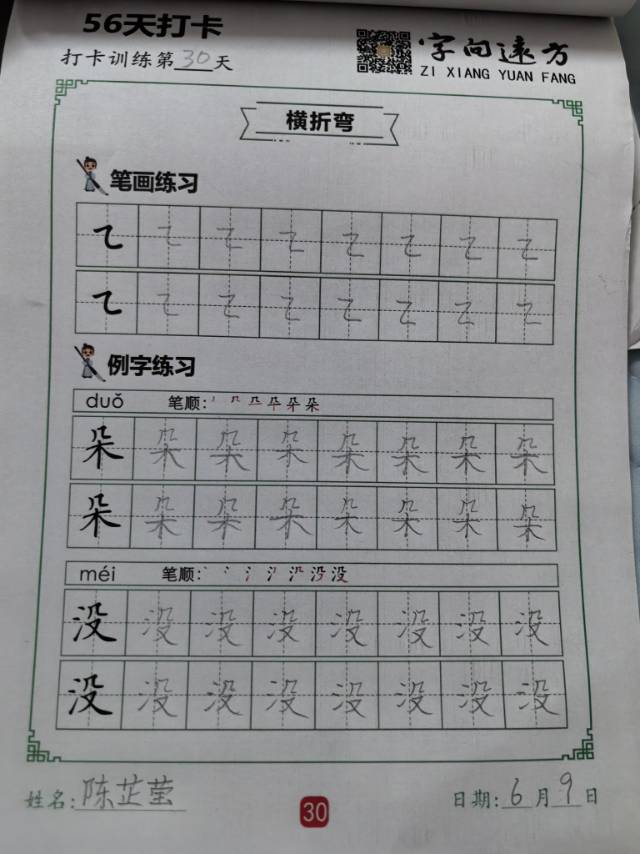 56天打卡
打卡训练第30天
字向远方
ZI XIANG YUAN FANG
横折弯
笔画练习
㇍ ㇍ ㇍ ㇍ ㇍ ㇍ ㇍ ㇍
㇍ ㇍ ㇍ ㇍ ㇍ ㇍ ㇍ ㇍
例字练习
duǒ 笔顺:
朵 朵 朵 朵 朵 朵 朵 朵
朵 朵 朵 朵 朵 朵 朵 朵
méi 笔顺:
没 没 没 没 没 没 没 没
没 没 没 没 没 没 没 没
姓名:陈芷莹
30
日期:6月9日